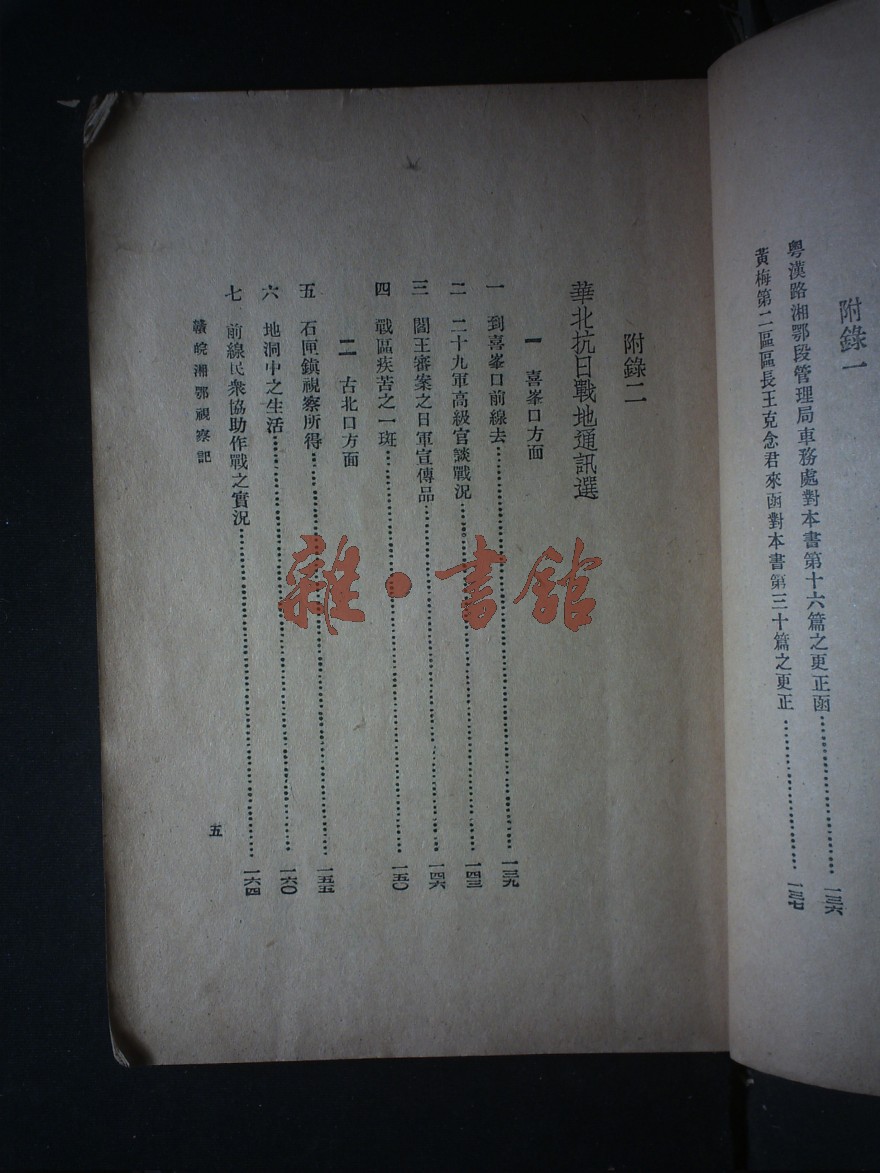 附錄一
粵漢路湘鄂段管理局車務處對本書第十六篇之更正函……一三六
黃梅第二區區長王克念君來函對本書第三十篇之更正……一三七
附錄二
華北抗日戰地通訊選
一 喜峯口方面
一 到喜峯口前線去……一三九
二 二十九軍高級官談戰況……一四三
三 閻王審案之日軍宣傳品……一四六
四 戰區疾苦之一斑……一五〇
二 古北口方面
五 石匣鎮視察所得……一五五
六 地洞中之生活……一六〇
七 前線民衆協助作戰之實況……一六四
贛皖湘鄂視察記
五
雜·書館